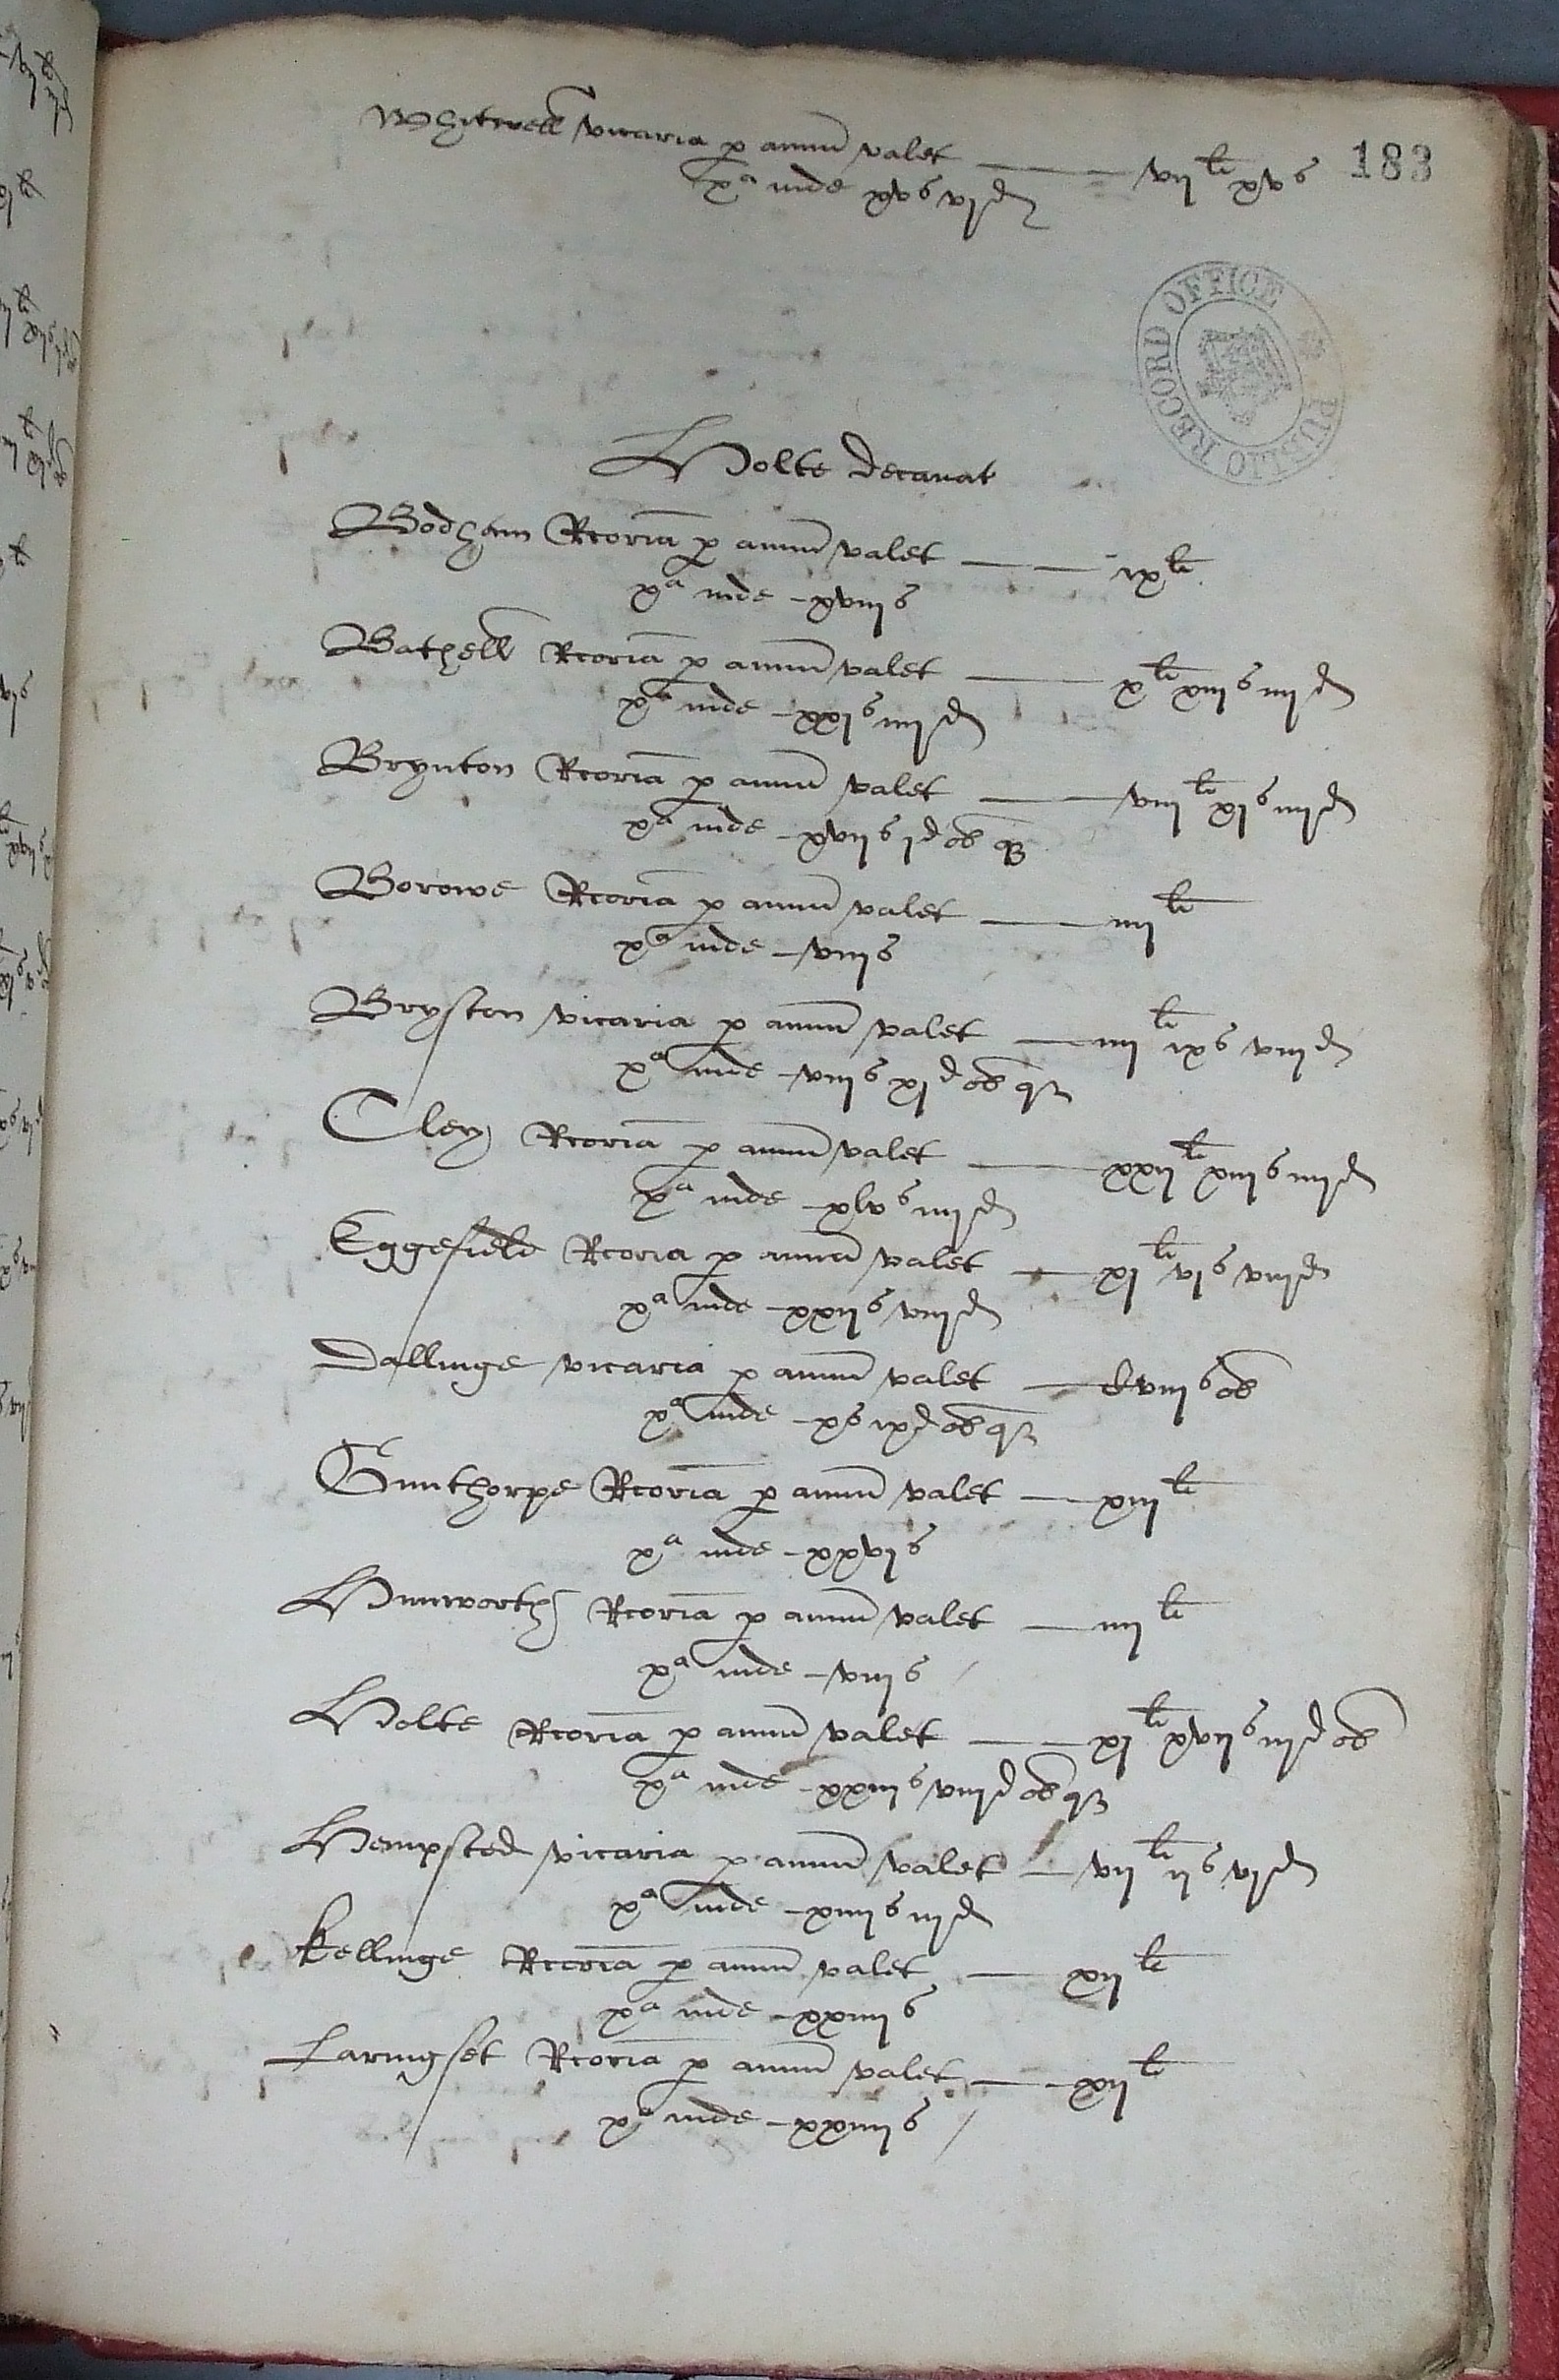 Whitwell vicaria p annu valet — vij li xv s
183
xa inde xv s vj d
PUBLIC RECORD OFFICE
Holte decanat
Bodham Rcoria p annu valet — ix li
xa inde - xviij s
Bathell Rcoria p annu valet — x li xiij s iiij d
xa inde - xxj s iiij d
Brynton Rcoria p annu valet — viij li xj s iiij d
xa inde - xvij s j d ob qz
Borowe Rcoria p annu valet — iiij li
xa inde - viij s
Bryston vicaria p annu valet — iiij li ix s viij d
xa inde - viij s xj d ob qz
Cley Rcoria p annu valet — xxij li xiij s iiij d
xa inde - xlv s iiij d
Eggefield Rcoria p annu valet — xj li vj s viij d
xa inde - xxij s viij d
Dallinge vicaria p annu valet — cviij s ob
xa inde - x s ix d ob qz
Gunthorpe Rcoria p annu valet — xiij li
xa inde - xxvj s
Hunworth Rcoria p annu valet — iiij li
xa inde - viij s /
Holte Rcoria p annu valet — xj li xvij s iij d ob
xa inde - xxiij s viij d ob qz
Hempsted vicaria p annu valet — vij li ij s vj d
xa inde - xiiij s iij d
Kellinge Rcoria p annu valet — xij li
xa inde - xxiiij s
Laringset Rcoria p annu valet — xij li
xa inde - xxiiij s /